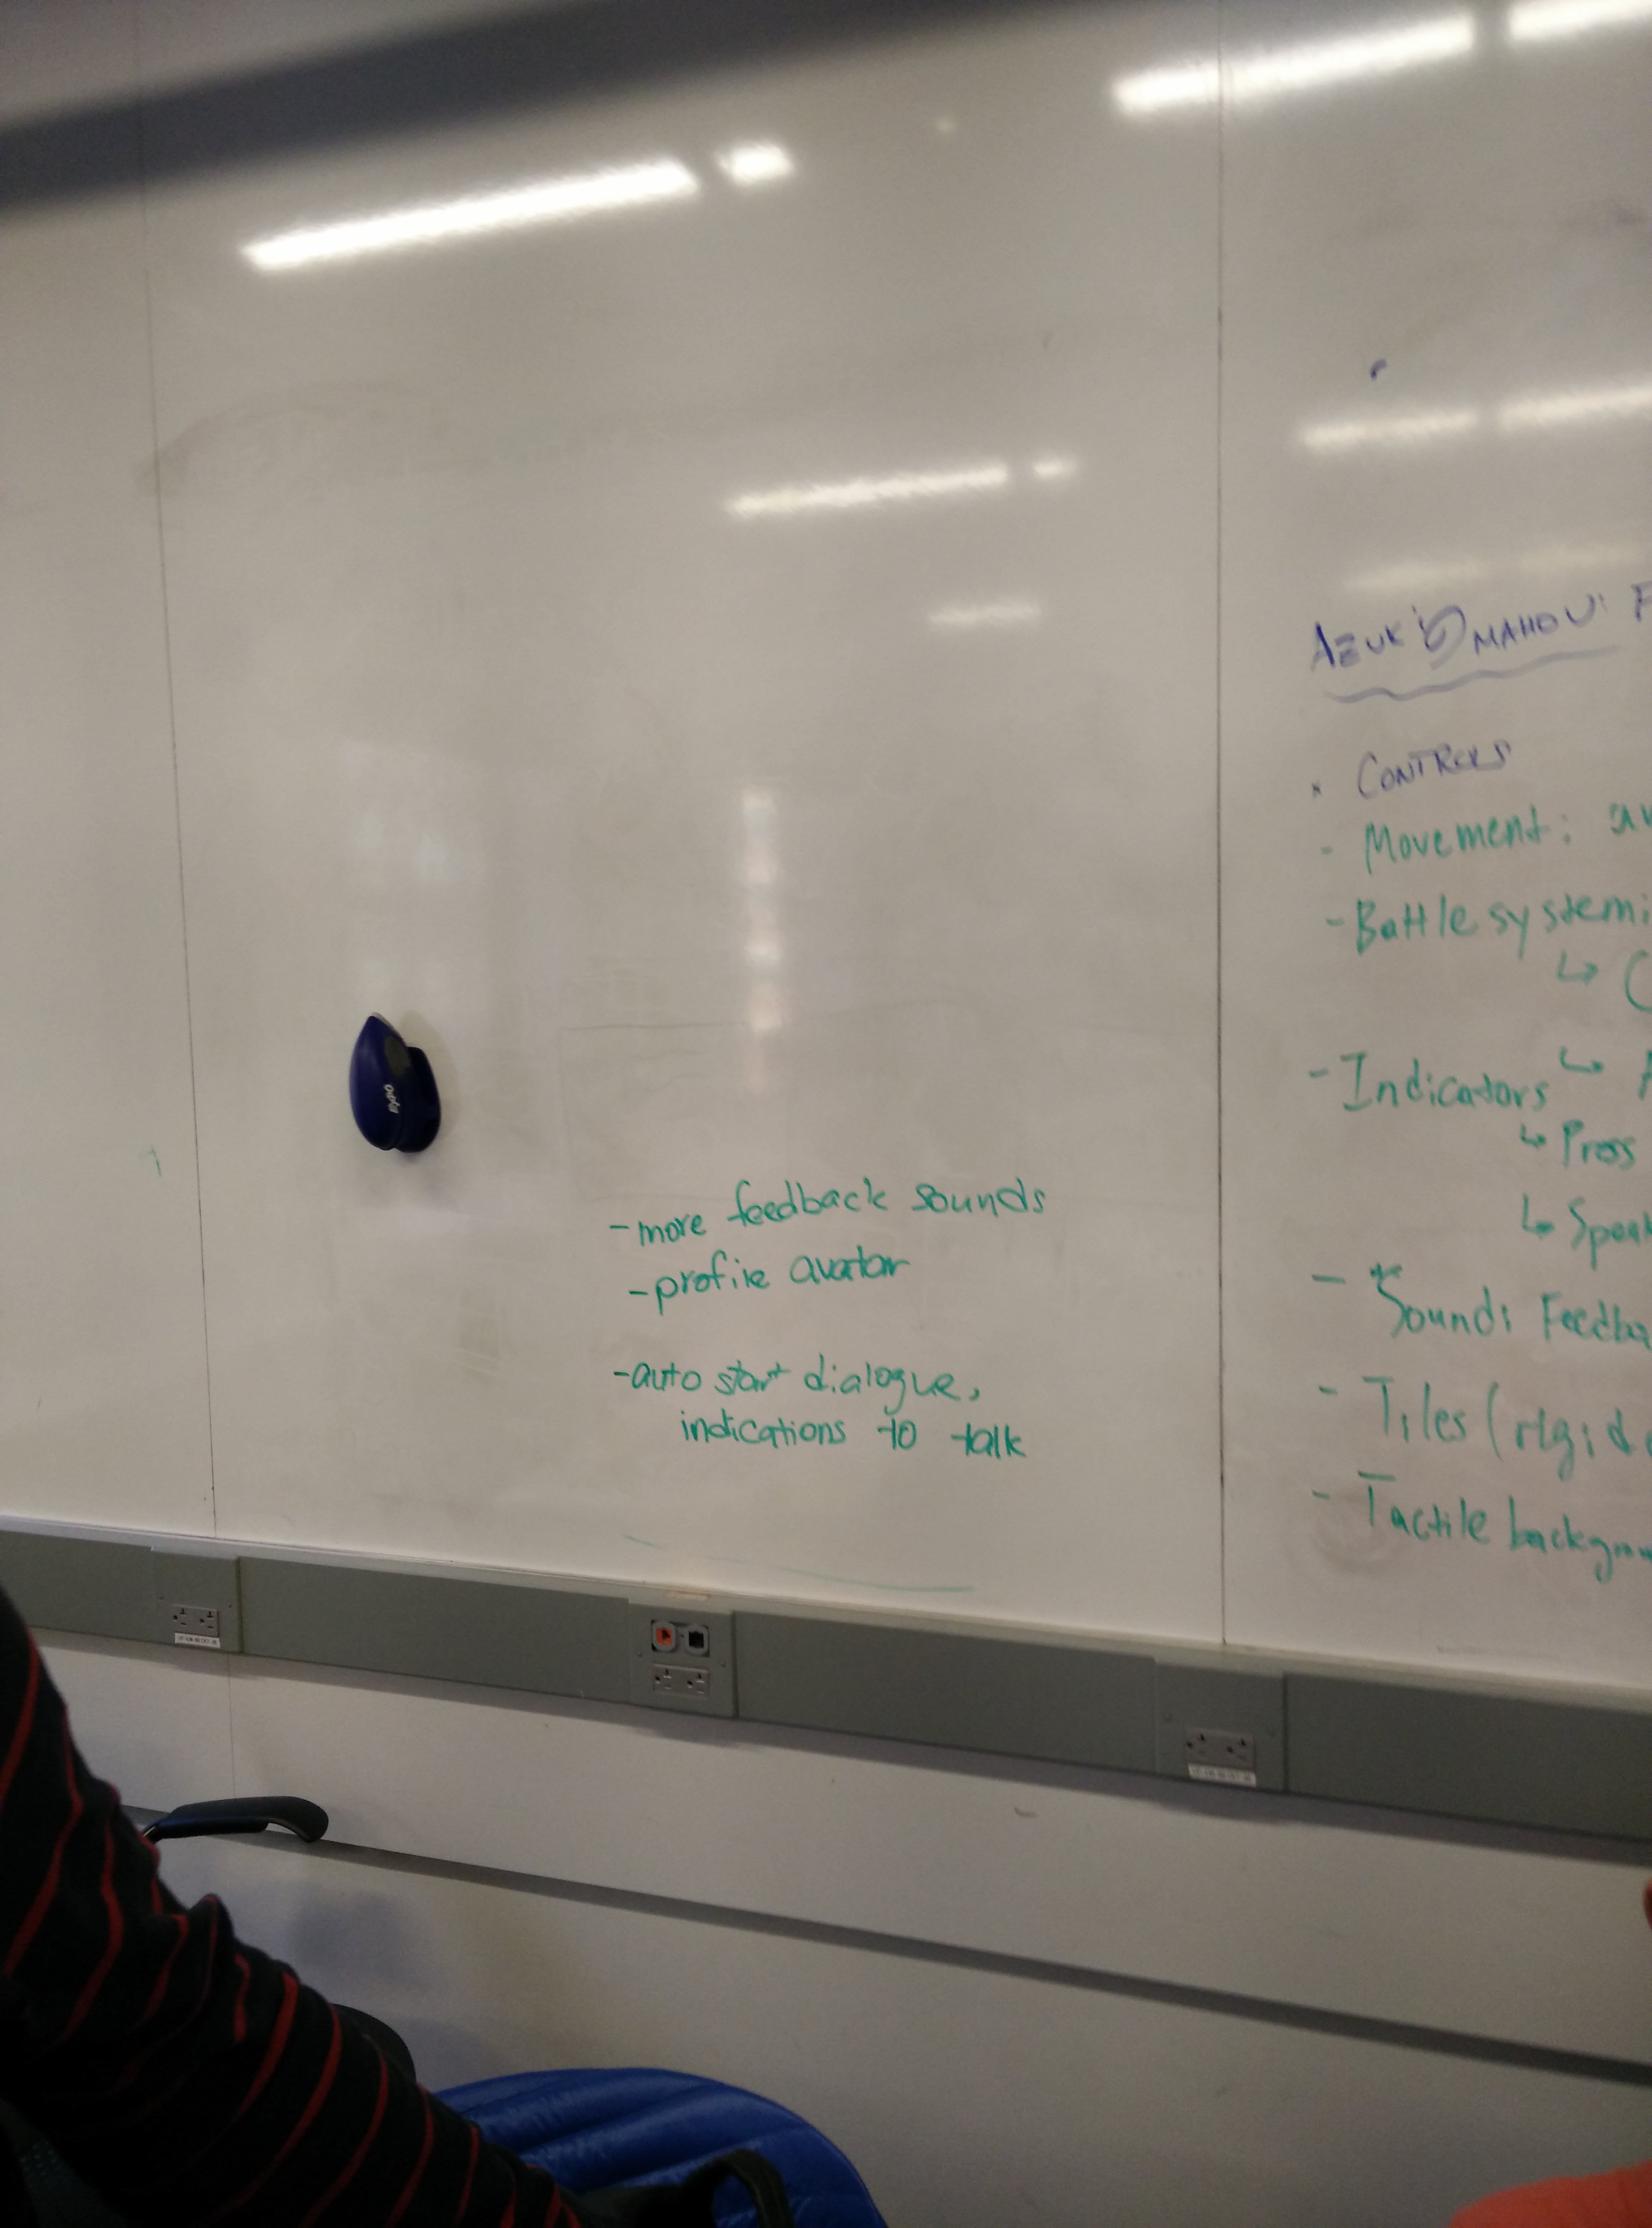 - more feedback sounds
- profile avatar
- auto start dialogue,
indications to talk
CONTROLS
- Movement:
- Battle system:
- Indicators
↳ Press
- Sound: Feedba
- Tiles (rigid
- Tactile backgrou
EXPO